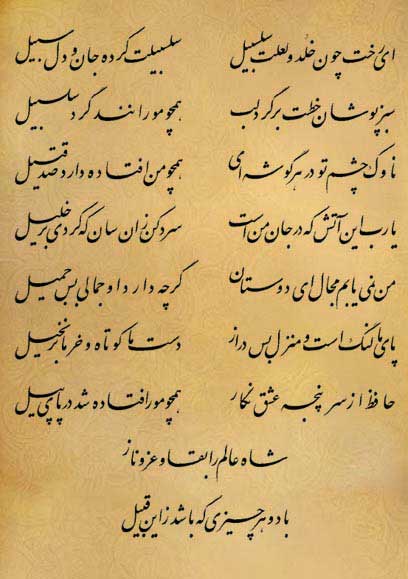 ای رخت چون خلد و لعلت سلسبیل سلسبیلت کرده جان و دل سبیل
سبزپوشان خطت بر گرد لب همچو مورانند گرد سلسبیل
ناوک چشم تو در هر گوشه ای همچو من افتاده دارد صد قتیل
یا رب این آتش که در جان من است سرد کن زان سان که کردی بر خلیل
من نمی یابم مجال ای دوستان گرچه دارد او جمالی بس جمیل
پای ما لنگ است و منزل بس دراز دست ما کوتاه و خرما بر نخیل
حافظ از سر پنجه عشق نگار همچو مور افتاده شد در پای پیل
شاه عالم را بقا و عز و ناز
باد و هر چیزی که باشد زاین قبیل